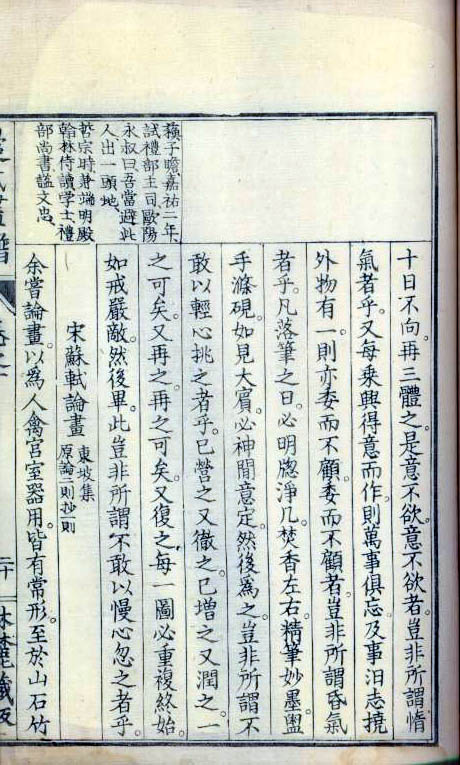 十日不向。再三體之。是意不欲。意不欲者。豈非所謂惰
氣者乎。又每乘興得意而作。則萬事俱忘。及事汨志撓
外物有一。則亦委而不顧。委而不顧者。豈非所謂昏氣
者乎。凡落筆之日。必明牕淨几。焚香左右。精筆妙墨。盥
手滌硯。如見大賓。必神閒意定。然後爲之。豈非所謂不
敢以輕心挑之者乎。已營之又徹之。已增之又潤之。一
之可矣。又再之。再之可矣。又復之。每一圖必重複終始
如戒嚴敵。然後畢。此豈非所謂不敢以慢心忽之者乎。
蘓子瞻嘉祐二年
試禮部主司歐陽
永叔曰吾當避此
人出一頭地
哲宗時兼端明殿
翰林侍讀学士禮
部尚書謚文忠
宋蘇軾論畫
東坡集
原論二則抄一則
余嘗論畫。以爲人禽宮室器用。皆有常形。至於山石竹